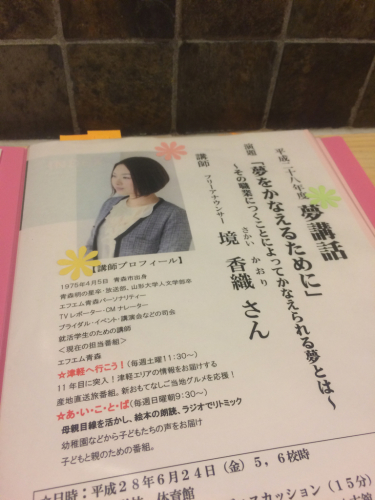 平成二十八年度 夢講話
演題 「夢をかなえるために」
～その職業につくことによってかなえられる夢とは～
講師 フリーアナウンサー 境 香織 さん
さかい かおり
【講師プロフィール】
1975年4月5日 青森市出身
青森明の星卒・放送部、山形大学人文学部卒
エフエム青森パーソナリティー
TVレポーター・CMナレーター
ブライダル・イベント・講演会などの司会
就活学生のための講師
＜現在の担当番組＞
エフエム青森
☆津軽へ行こう！（毎週土曜11:30～）
11年目に突入！津軽エリアの情報をお届けする
産地直送旅番組。新おもてなしご当地グルメを応援！
☆あ・い・こ・と・ば（毎週日曜朝9:30～）
母親目線を活かし、絵本の朗読、ラジオでリトミック
幼稚園などから子どもたちの声をお届け
子どもと親のための番組。
日時：平成28年6月24日（金）5，6校時
体育館
スカッション（15分）